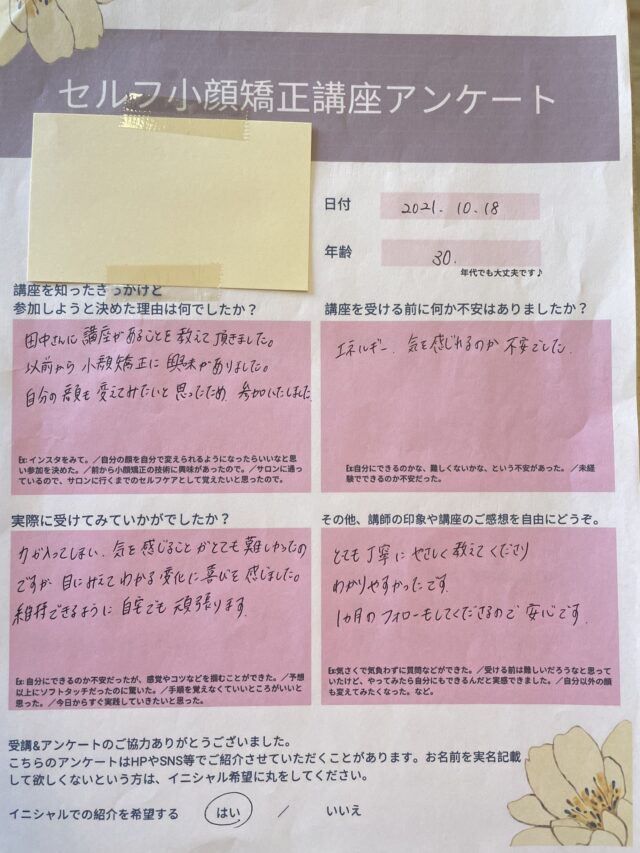 セルフ小顔矯正講座アンケート
日付
2021. 10. 18
年齢
30.
年代でも大丈夫です♪
講座を知ったきっかけと
参加しようと決めた理由は何でしたか？
田中さんに講座があることを教えて頂きました。
以前から小顔矯正に興味がありました。
自分の顔も変えてみたいと思ったため 参加いたしました
Ex: インスタをみて。／自分の顔を自分で変えられるようになったらいいなと思
い参加を決めた。／前から小顔矯正の技術に興味があったので。／サロンに通っ
ているので、サロンに行くまでのセルフケアとして覚えたいと思ったので。
講座を受ける前に何か不安はありましたか？
エネルギー、気を感じれるのか 不安でした
Ex:自分にできるのかな、難しくないかな、という不安があった。／未経
験でできるのか不安だった。
実際に受けてみていかがでしたか？
力が入ってしまい、気を感じることがとても難しかったの
ですが 目にみえてわかる変化に喜びを感じました。
維持できるように 自宅でも 頑張ります
Ex: 自分にできるのか不安だったが、感覚やコツなどを掴むことができた。／予想
以上にソフトタッチだったのに驚いた。／手順を覚えなくていいところがいいと
思った。／今日からすぐ実践していきたいと思った。
その他、講師の印象や講座のご感想を自由にどうぞ。
とても丁寧にやさしく教えてくださり
わかりやすかったです
1ヵ月のフォローもしてくださるので 安心です
Ex:気さくで気負わずに質問などができた。／受ける前は難しいだろうなと思って
いたけど、やってみたら自分にもできるんだと実感できました。／自分以外の顔
も変えてみたくなった。など。
受講&アンケートのご協力ありがとうございました。
こちらのアンケートはHPやSNS等でご紹介させていただくことがあります。お名前を実名記載
して欲しくないという方は、イニシャル希望に丸をしてください。
イニシャルでの紹介を希望する はい / いいえ